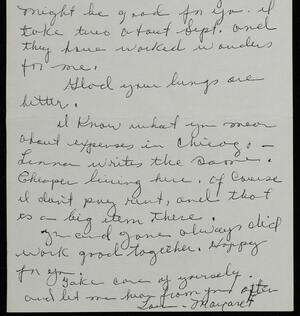 might be good for you. I
take two about Sept. and
they have worked wonders
for me.
Glad your lungs are
better.
I know what you mean
about expenses in Chicago -
writes the same.
Cheaper living here. Of course
I don't pay rent, and that
is a big item there.
You and always did
work good together. Happy
for you.
Take care of yourself
and let me hear from you often
Love - Margaret